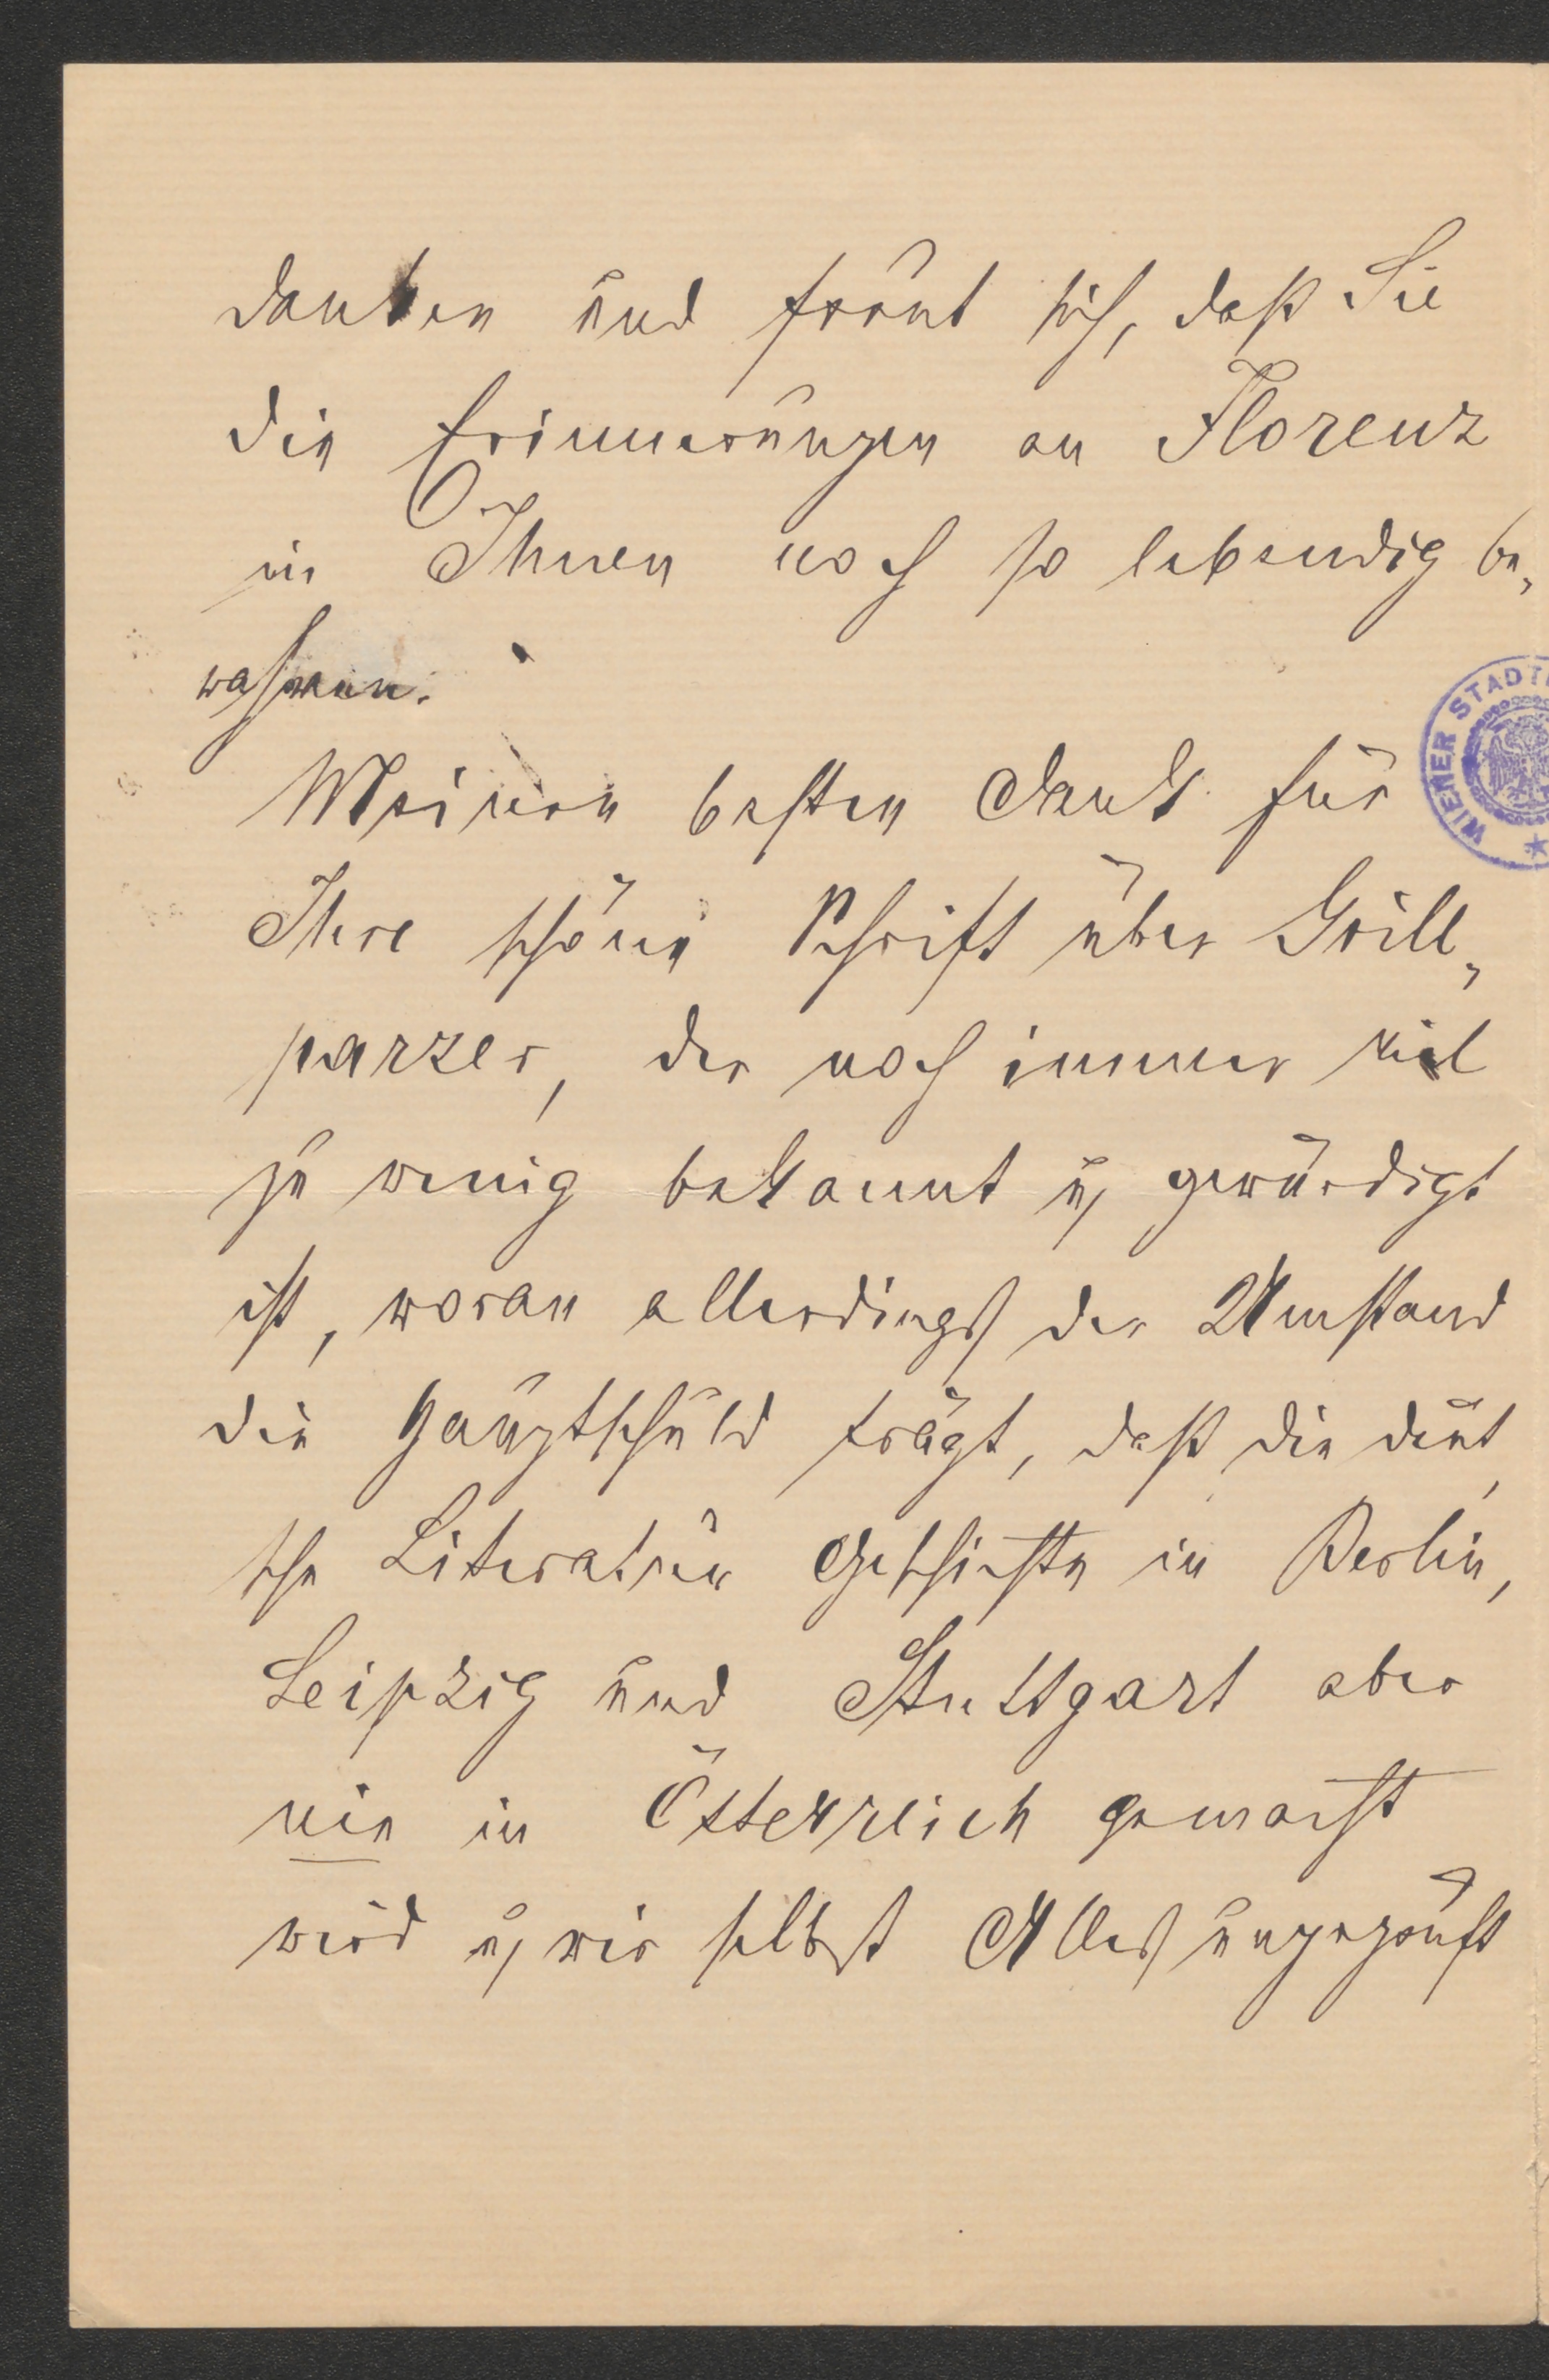 danken und freut sich, daß Sie
die Erinnerungen an Florenz
in Ihnen noch so lebendig be„
wahren.
Meinen besten Dank für
Ihre schöne Schrift über Grill„
parzer, der noch immer viel
zu wenig bekannt u. gewürdigt
ist, woran allerdings der Umstand
die Hauptschuld trägt, daß die deut„
sche Literatur Geschichte in Berlin,
Leipzig und Stuttgart aber
nie in Österreich gemacht
wird u. wir selbst Alles ungeprüft
WIENER STADT